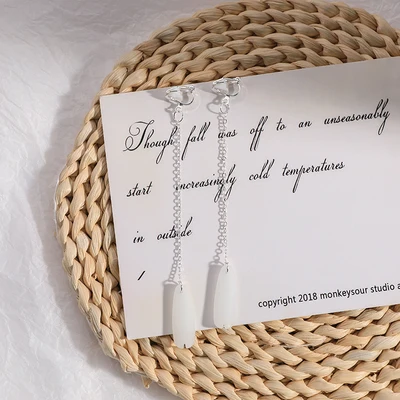 Though fall was off to an unseasonably
start increasingly cold temperatures
in outside
/
copyright 2018 monkeysour studio a